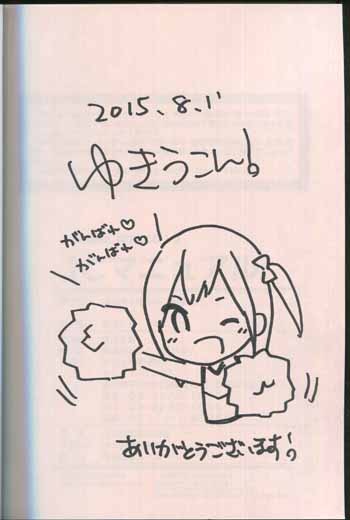 2015.8.11
ゆきうこん!
がんばれ♡
がんばれ♡
ありがとうございます!